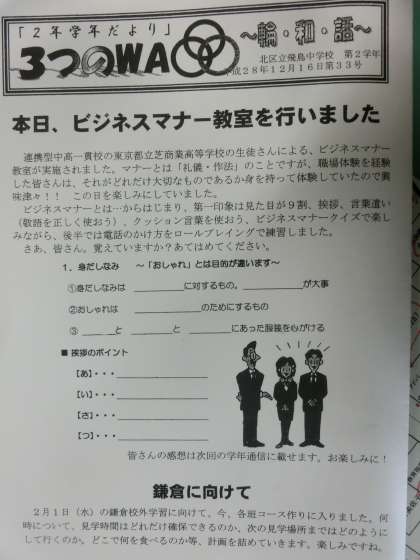 「2年学年だより」
3つのWA
～輪・和・話～
北区立飛鳥中学校 第2学年
平成28年12月16日第33号
本日、ビジネスマナー教室を行いました
連携型中高一貫校の東京都立芝商業高等学校の生徒さんによる、ビジネスマナー
教室が実施されました。マナーとは「礼儀・作法」のことですが、職場体験を経験
した皆さんは、それがどれだけ大切なものであるか身を持って体験していたので興
味津々！！ この日を楽しみにしていました。
ビジネスマナーとは…からはじまり、第一印象は見た目が9割、挨拶、言葉遣い
（敬語を正しく使おう）、クッション言葉を使おう、ビジネスマナークイズで楽し
みながら、後半では電話のかけ方をロールプレイングで練習しました。
さあ、皆さん。覚えていますか？あてはめてください。
1．身だしなみ ～「おしゃれ」とは目的が違います～
①身だしなみは ＿＿＿＿に対するもの。＿＿＿＿＿が大事
②おしゃれは ＿＿＿＿＿＿のためにするもの
③＿＿＿と＿＿＿＿と＿＿＿＿にあった服装を心がける
■ 挨拶のポイント
【あ】・・・＿＿＿＿＿＿＿＿
【い】・・・＿＿＿＿＿＿＿＿
【さ】・・・＿＿＿＿＿＿＿＿
【つ】・・・＿＿＿＿＿＿＿＿
皆さんの感想は次回の学年通信に載せます。お楽しみに！
鎌倉に向けて
2月1日（水）の鎌倉校外学習に向けて、今、各班コース作りに入りました。何
時について、見学時間はどれだけ確保できるのか、次の見学場所まではどのように
して行くのか。どこで何を食べるのか等、計画を詰めていきます。楽しみですね。